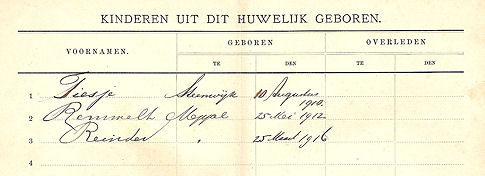 KINDEREN UIT DIT HUWELIJK GEBOREN.
VOORNAMEN. GEBOREN OVERLEDEN
TE DEN TE DEN
1 Tiesje Steenwijk 10 Augustus 1910.
2 Remmelt Meppel 25 Mei 1912
3 Reinder " 25 Maart 1916
4